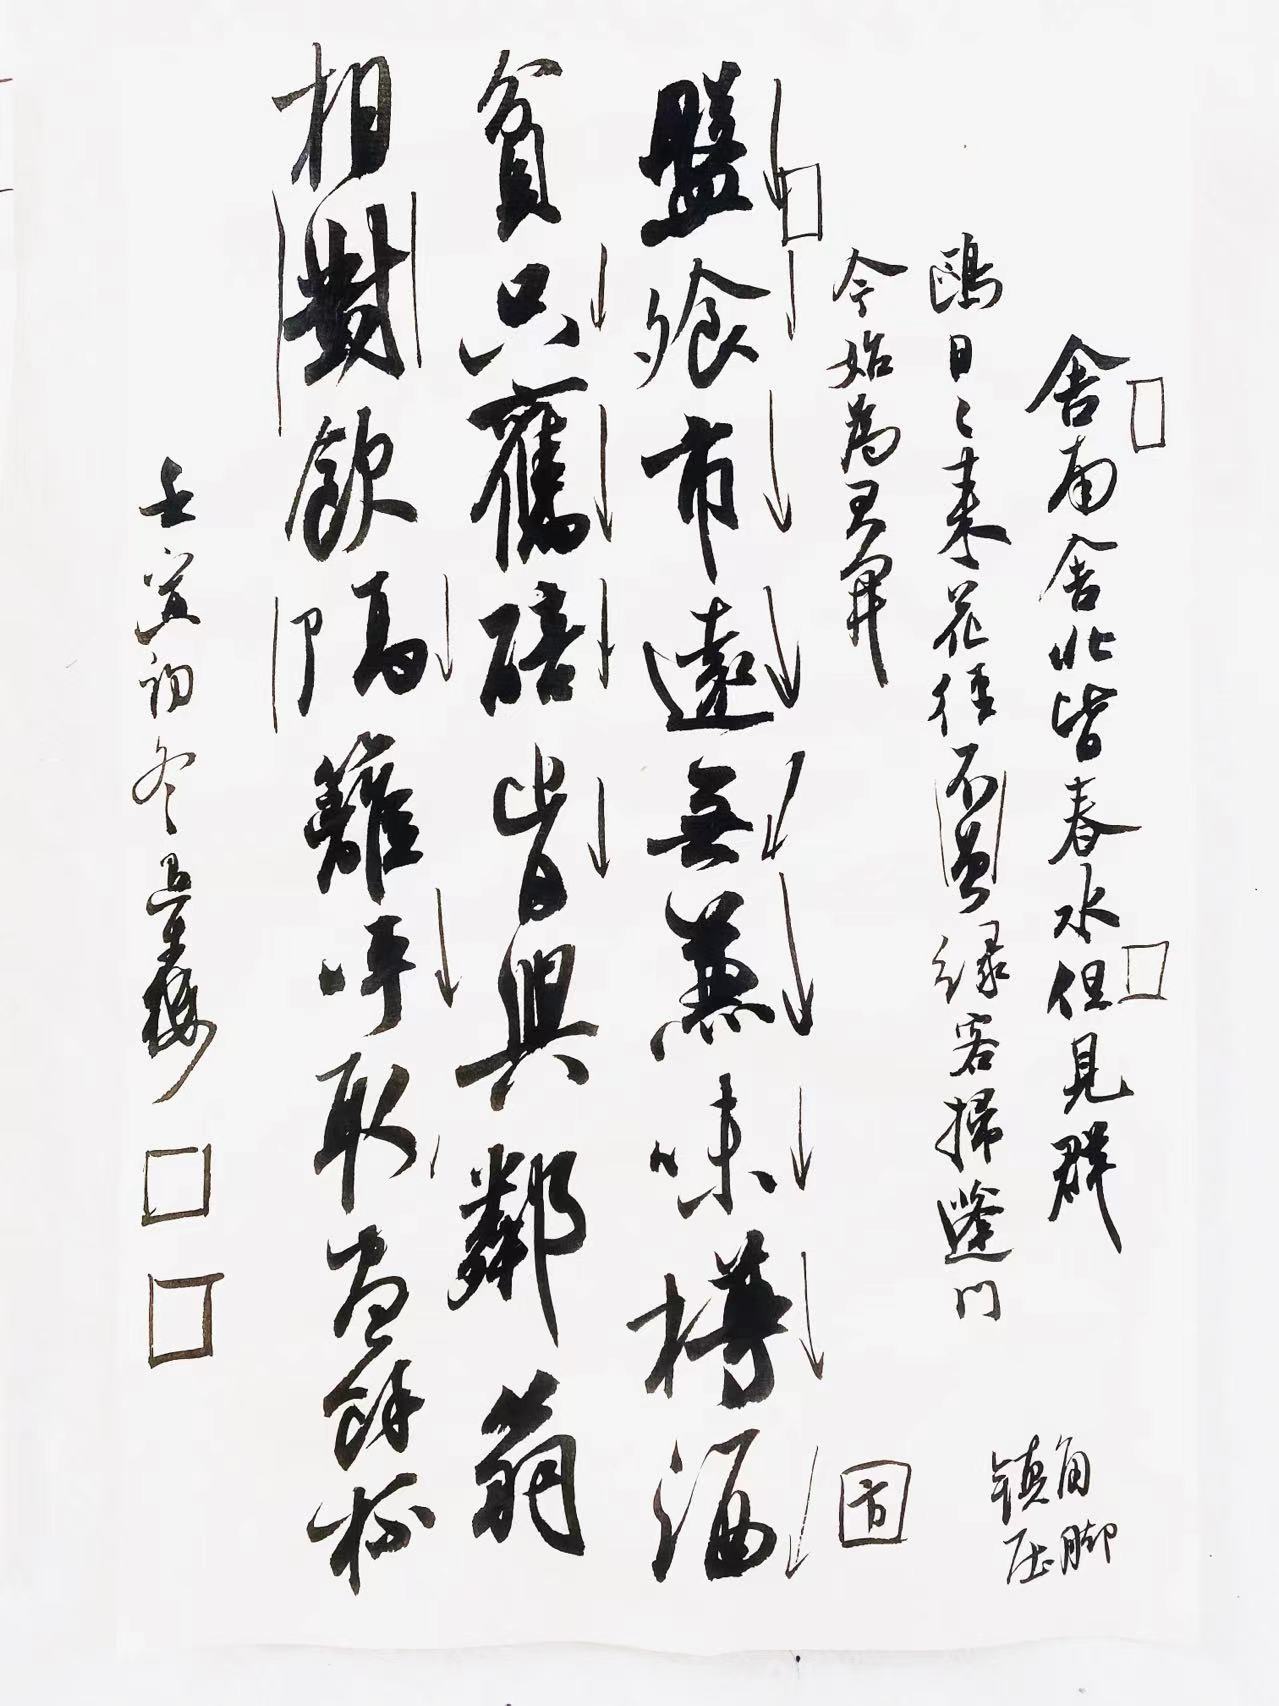 舍南舍北皆春水但見群
鷗日〻来花徑不曾緣客掃蓬門
今始為君開
盤飧市遠無兼味樽酒
貧只舊醅肯與鄰翁
相對飲隔籬呼取盡餘杯
壬寅初冬
角脚
鎮压
方